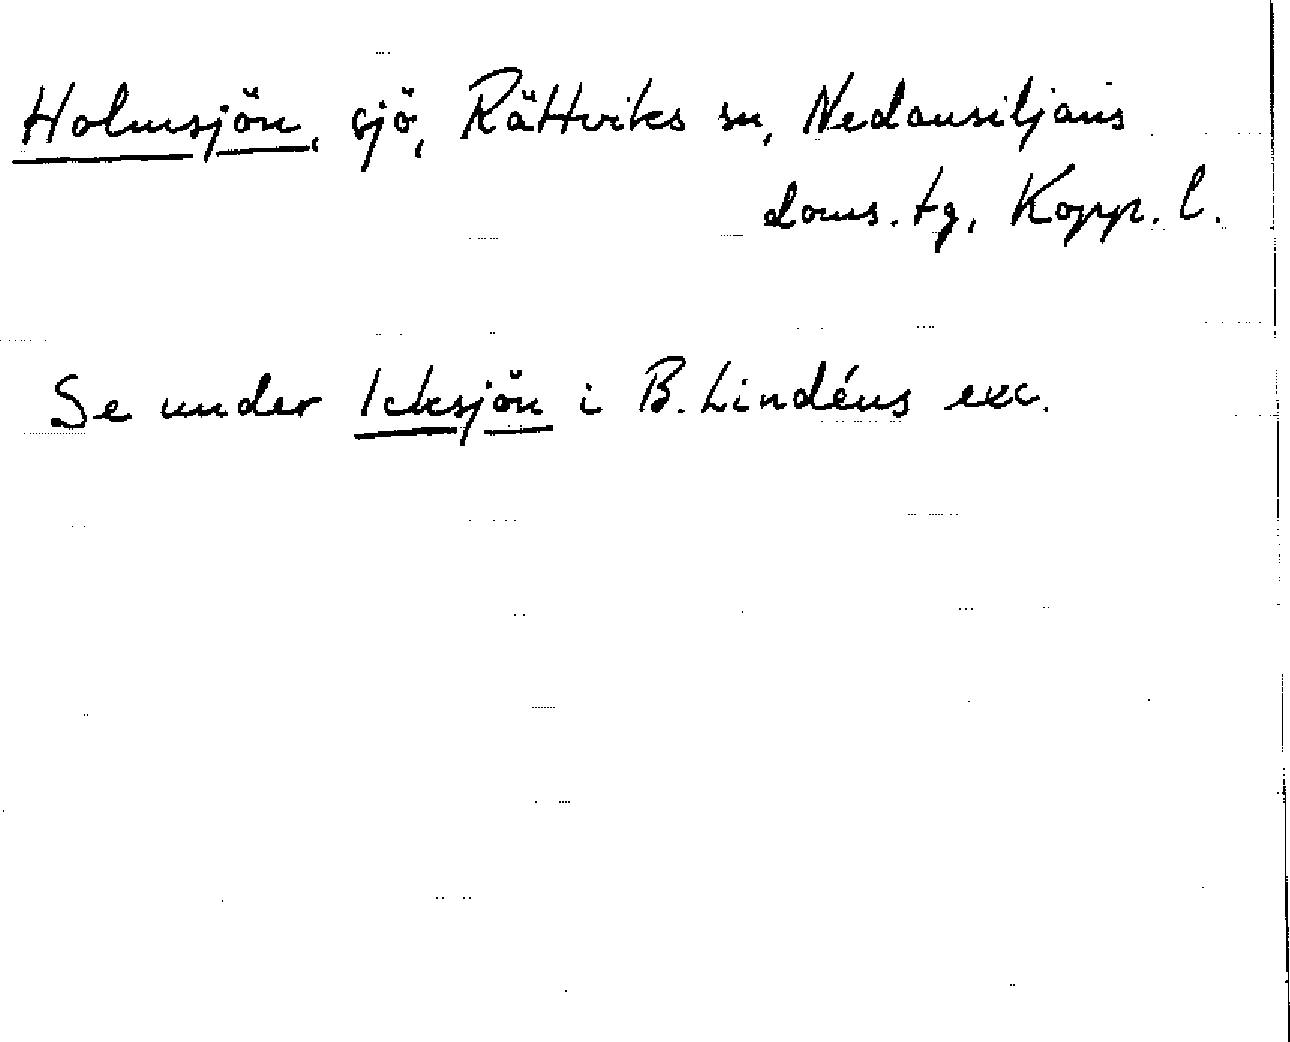 Holmsjön, sjö, Rättviks sn, Nedansiljans
doms. tg, Kopp. l.
Se under Icksjön i B. Lindéns exc.